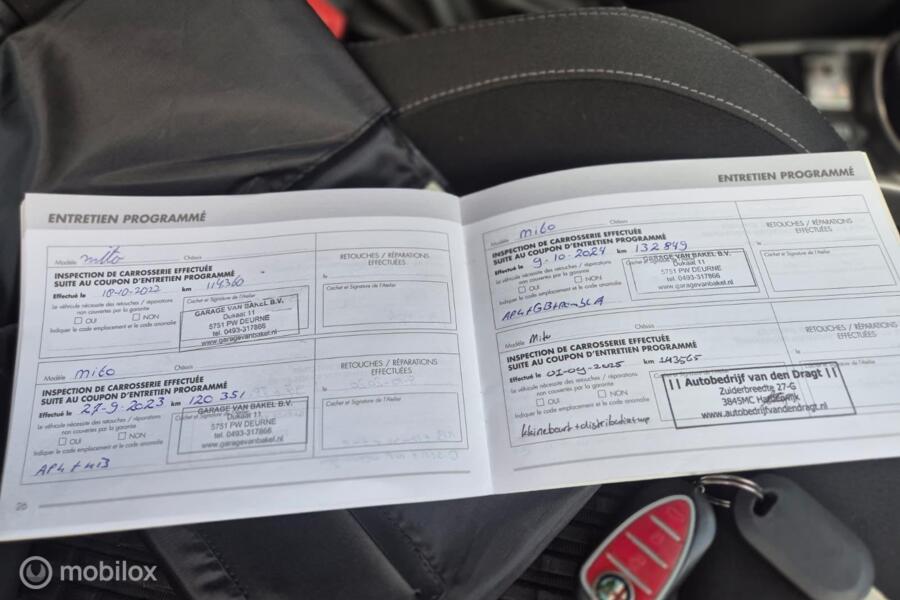 ENTRETIEN PROGRAMMÉ
Modèle mito Châssis
INSPECTION DE CARROSSERIE EFFECTUÉE
SUITE AU COUPON D'ENTRETIEN PROGRAMMÉ
Effectué le 10-10-2022 km 114360
Le véhicule nécessite des retouches / réparations
non couvertes par la garantie
OUI NON
Indiquer le code emplacement et le code anomalie
Cachet et Signature de l'Atelier
GARAGE VAN BAKEL B.V.
Dukaat 11
5751 PW DEURNE
tel. 0493-317866
www.garagevanbakel.nl
RETOUCHES / RÉPARATIONS
EFFECTUÉES
le
Cachet et Signature de l'Atelier
Modèle mito Châssis
INSPECTION DE CARROSSERIE EFFECTUÉE
SUITE AU COUPON D'ENTRETIEN PROGRAMMÉ
Effectué le 27-9-2023 km 120 351
Le véhicule nécessite des retouches / réparations
non couvertes par la garantie
OUI NON
Indiquer le code emplacement et le code anomalie
Cachet et Signature de l'Atelier
GARAGE VAN BAKEL B.V.
Dukaat 11
5751 PW DEURNE
tel. 0493-317866
www.garagevanbakel.nl
RETOUCHES / RÉPARATIONS
EFFECTUÉES
le
Cachet et Signature de l'Atelier
26
ENTRETIEN PROGRAMMÉ
Modèle mito Châssis
INSPECTION DE CARROSSERIE EFFECTUÉE
SUITE AU COUPON D'ENTRETIEN PROGRAMMÉ
Effectué le 9-10-2024 km 132849
Le véhicule nécessite des retouches / réparations
non couvertes par la garantie
OUI NON
Indiquer le code emplacement et le code anomalie
GARAGE VAN BAKEL B.V.
Dukaat 11
5751 PW DEURNE
tel. 0493-317866
www.garagevanbakel.nl
RETOUCHES / RÉPARATIONS
EFFECTUÉES
le
Cachet et Signature de l'Atelier
Modèle Mito Châssis
INSPECTION DE CARROSSERIE EFFECTUÉE
SUITE AU COUPON D'ENTRETIEN PROGRAMMÉ
Effectué le 01-09-2025 km 143565
Le véhicule nécessite des retouches / réparations
non couvertes par la garantie
OUI NON
Indiquer le code emplacement et le code anomalie
II Autobedrijf van den Dragt II
Zuiderbreedte 27-G
3845MC Harderwijk
www.autobedrijfvandendragt.nl
RETOUCHES / RÉPARATIONS
EFFECTUÉES
le
Cachet et Signature de l'Atelier
mobilox